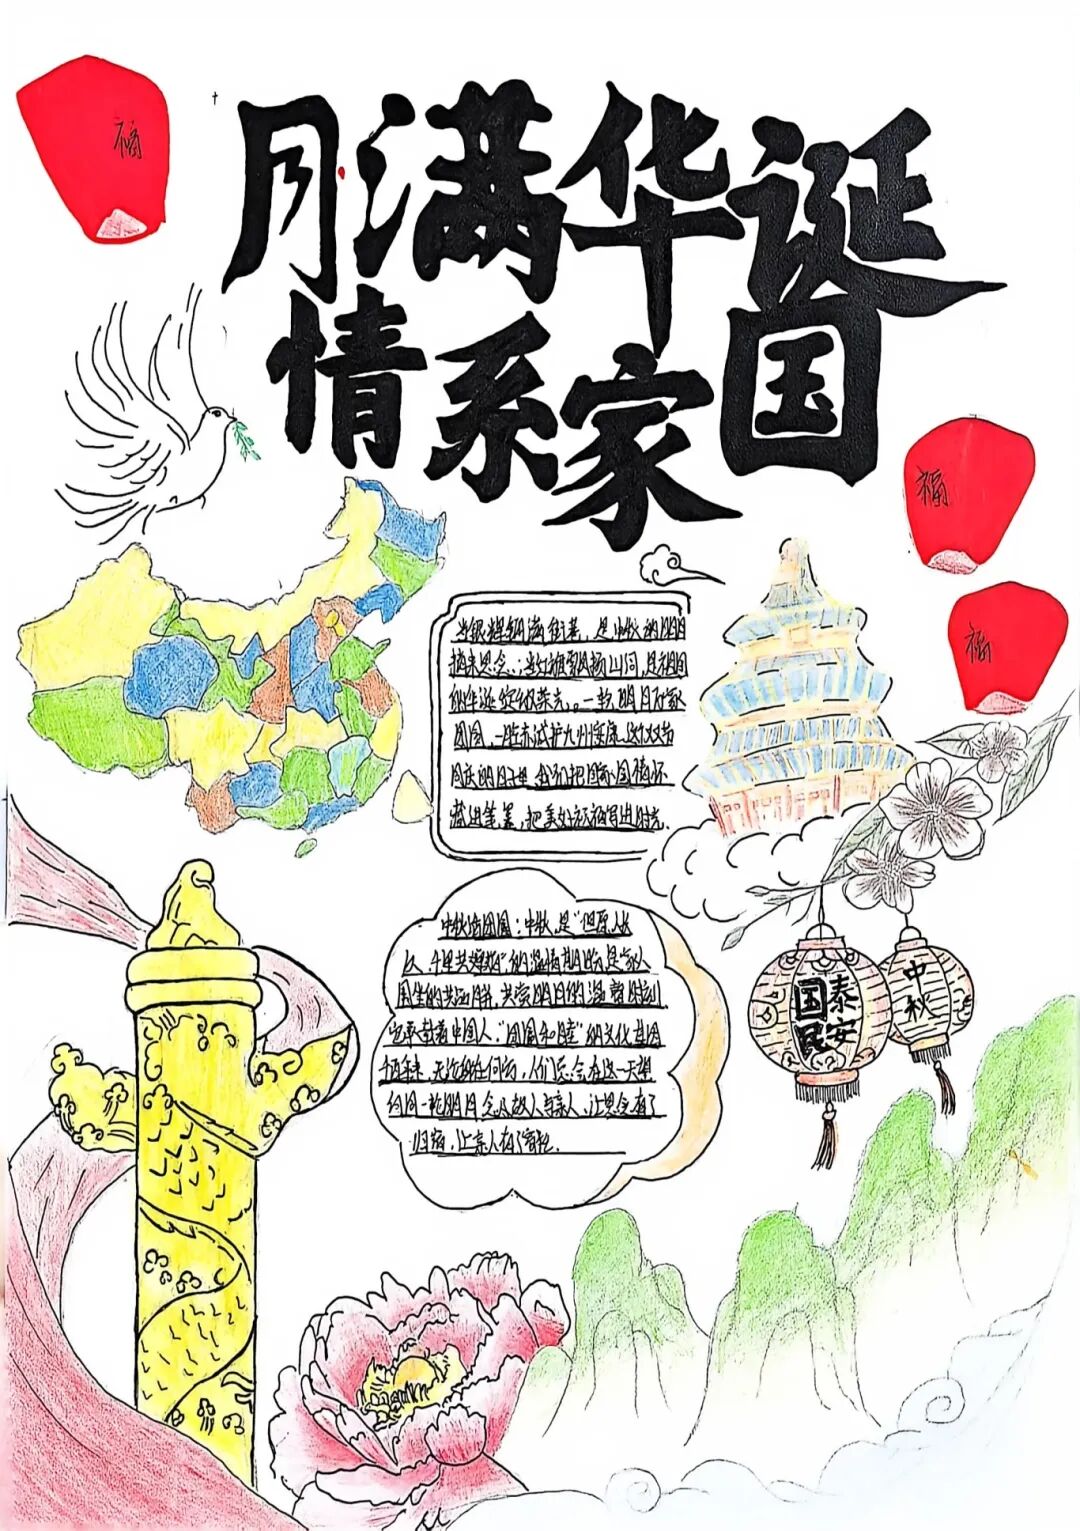 福
月满华诞
情系家国
福
福
当银辉铺满街巷，是中秋的明月
捎来思念；当红旗飘扬山河，是祖国
的华诞绽放荣光。一轮明月万家
团圆，一片赤诚护九州安康，这个双节
同庆的日子里，我们把家国情怀
藏进笔墨，把美好祝福写进时光.
中秋话团圆：中秋，是“但愿人长
久，千里共婵娟”的温情期盼是家人
围坐的共话月饼，共赏明月的温馨时刻
它承载着中国人“团圆和睦”的文化基因
千百年来，无论身在何方，人们总会在这一天望
向同一轮明月念及故人与亲人，让思念有了
归宿，让亲人有了寄托.
国泰民安
中秋